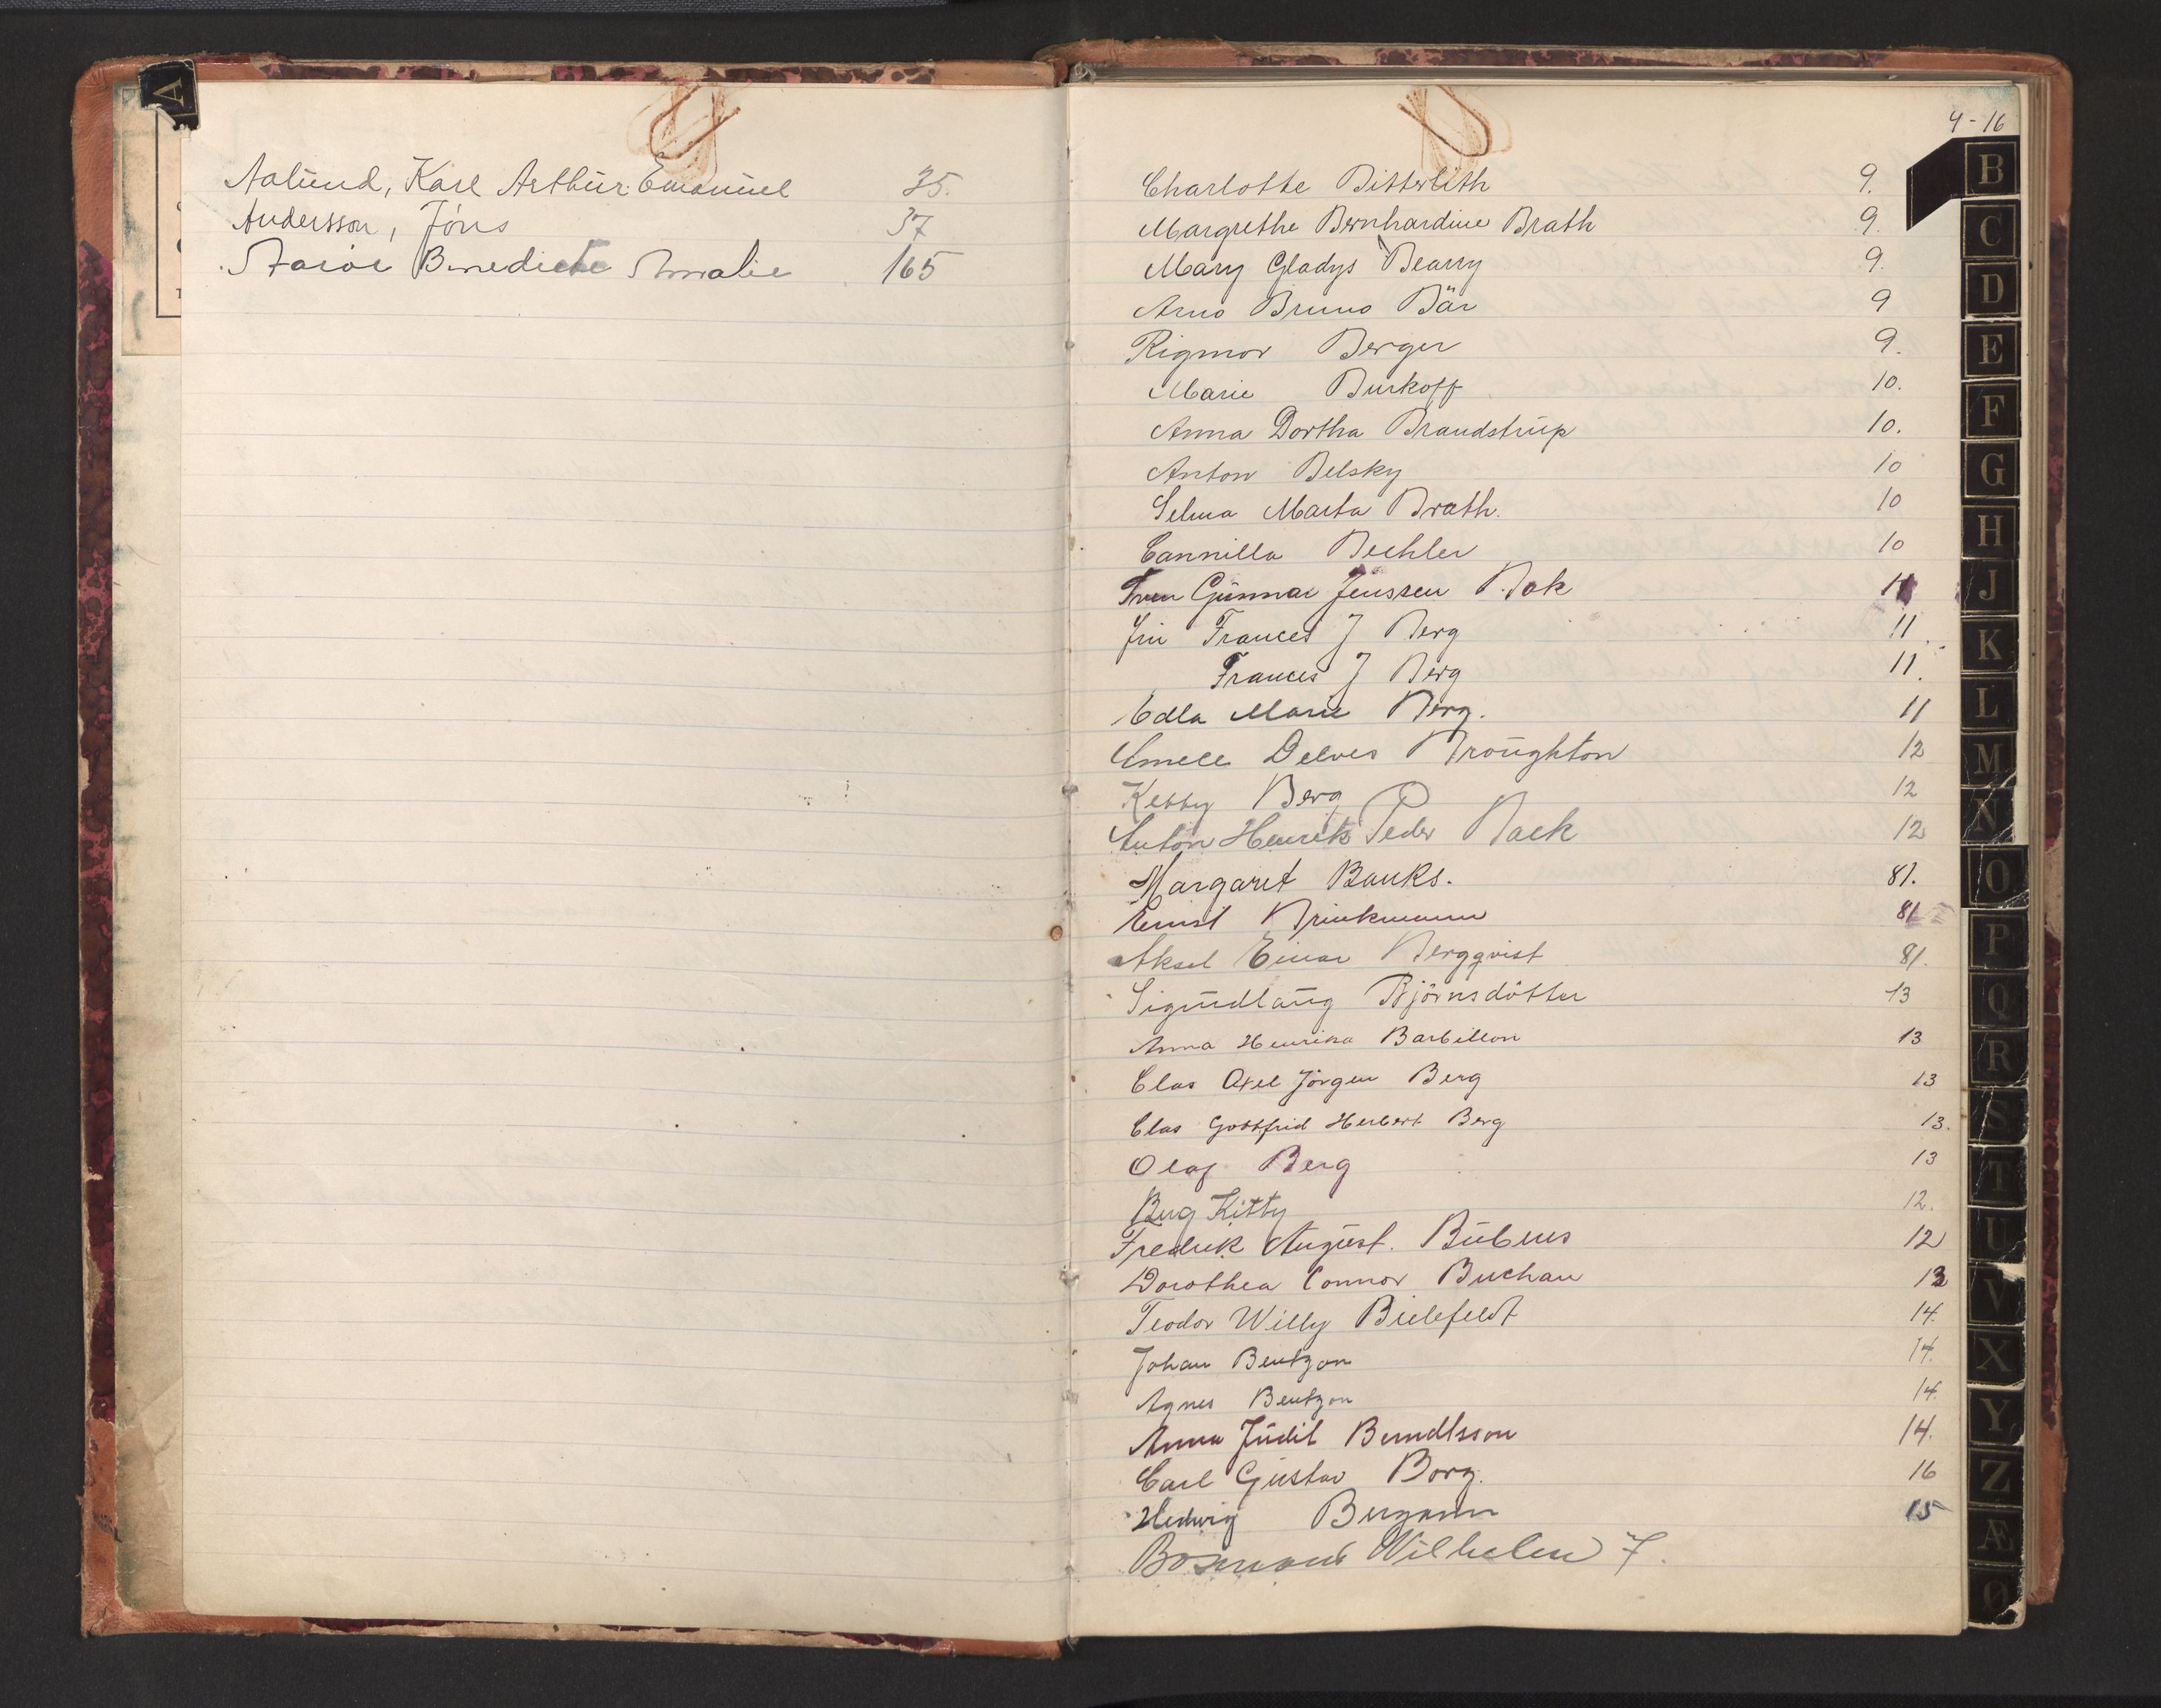 A
Aalund, Karl Arthur Emanuel 35.
Andersson, Jöns 37
Benedicte Amalie 165
4-16
Charlotte Bitterlith 9.
Margrethe Bernhardine Brath 9.
Mary Gladys Bearry 9.
Arno Bruno Bär 9
Rigmor Berger 9.
Marie Burkoff 10.
Anna Dortha Brandstrup 10.
Anton Belsky 10
Selma Marta Brath. 10
Cannilla Bechler 10
Gunnar Jenssen Bak 11
Frances J Berg 11
Frances J Berg 11.
Edla Marie Berg. 11
Delves Broughton 12
Ketty Berg 12
Anton Henrik Peder Back 12
Margaret Banks. 81.
Ernst Brinkmann 81
Aksel Einar Bergqvist 81.
Sigudlaug Björnsdótter 13
Anna Henrika Barbillon 13
Clas Axel Jörgen Berg 13
Clas Gottfrid Herbert Berg 13.
Olaf Berg 13
Berg Kitty 12.
Fredrik August. Bübens 12
Dorothea Connor Buchan 13
Teodor Willy Bielefeldt 14.
Johan Bentzon 14.
Agnes Bentzon 14.
Anna Judit Berndtsson 14.
Carl Gustav Borg. 16
Hedwig Bergmann 15
Wilhelm 7.
B
C
D
E
F
G
H
J
K
L
M
N
O
P
Q
R
S
T
U
V
X
Y
Z
Æ
Ø